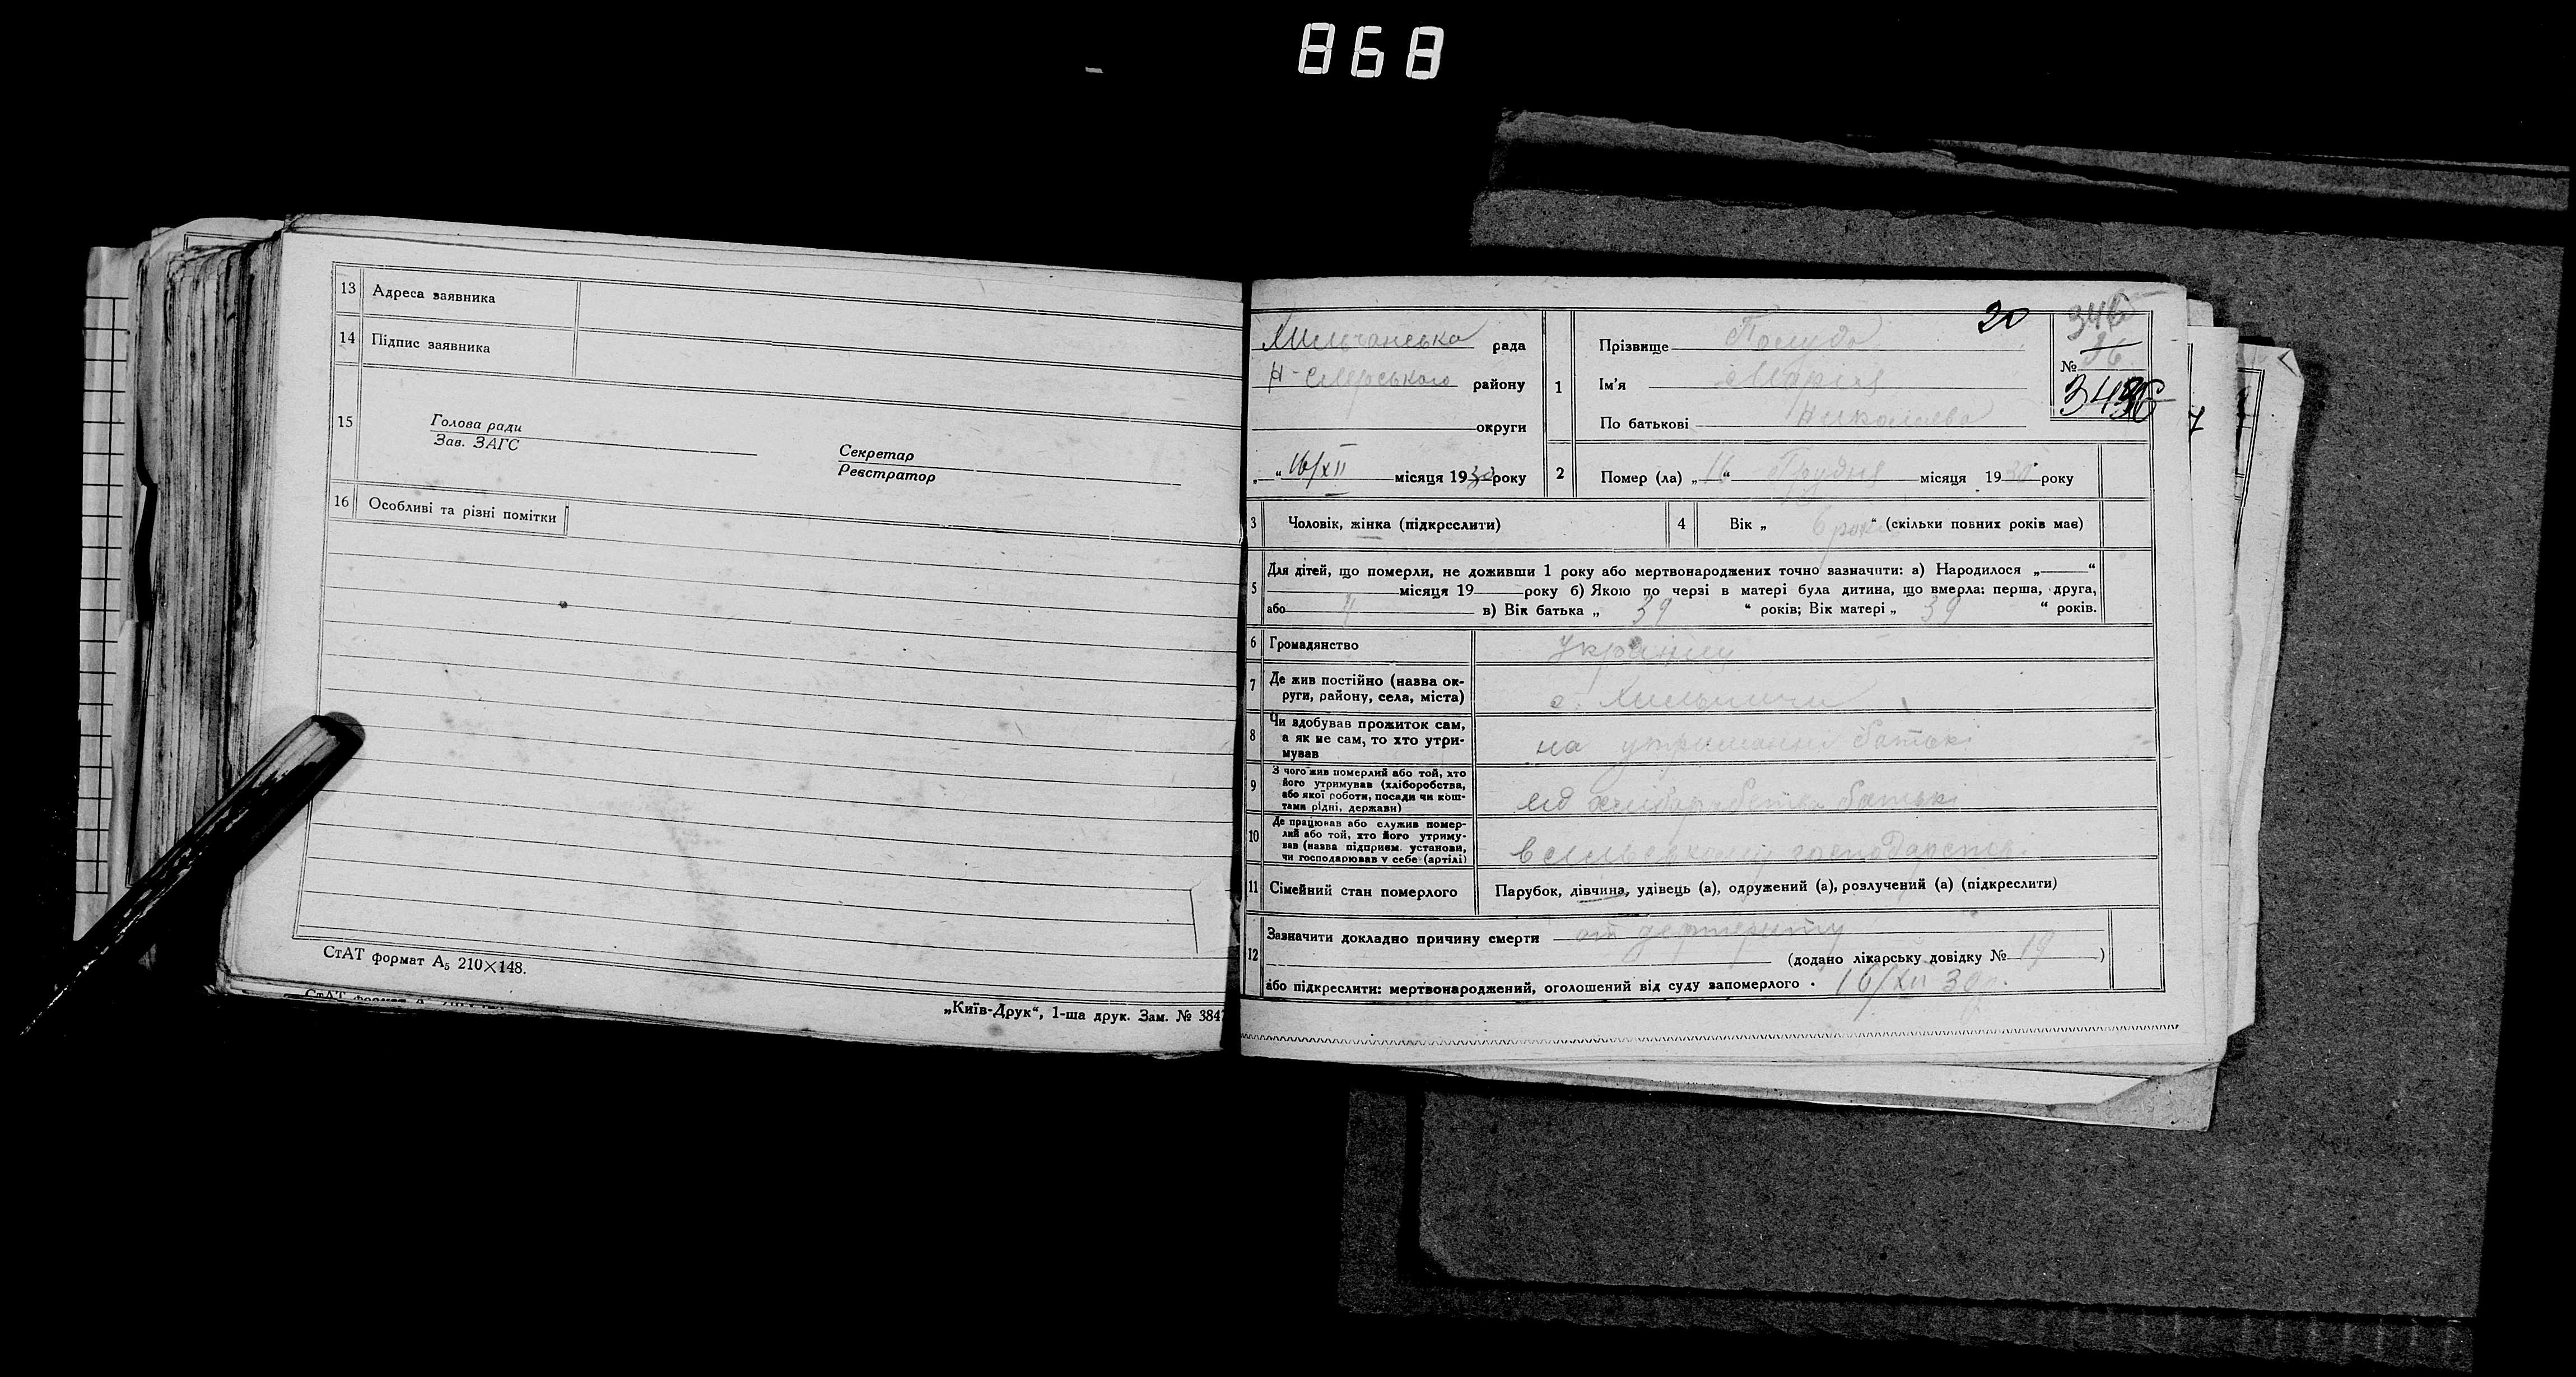 868
13 Адреса заявника
14 Підпис заявника
15 Голова ради
Зав. ЗАГС
Секретар
Реєстратор
16 Особливі та різні помітки
СтАТ формат А5 210×148.
„Київ-Друк“, 1-ша друк. Зам. № 3847
20
346
Хильчанська рада
Н-Сіверського району
округи
„ “ 16/XII місяця 1930 року
1 Прізвище
Ім’я Марія
По батькові Николаева
№ 36
2 Помер (ла) „16“ Грудня місяця 1930 року
3 Чоловік, жінка (підкреслити)
4 Вік „ 6 рок “ (скільки повних років має)
5 Для дітей, що померли, не доживши 1 року або мертвонароджених точно зазначити: а) Народилося „ “
місяця 19 року б) Якою по черзі в матері була дитина, що вмерла: перша, друга,
або 4 в) Вік батька „ 39 “ років; Вік матері „ 39 “ років.
6 Громадянство
7 Де жив постійно (назва округи, району, села, міста) с. Хильчичи
8 Чи здобував прожиток сам, а як не сам, то хто утримував на утриманні батьк
9 З чого жив померлий або той, хто його утримував (хліборобства, або якої роботи, посади чи коштами рідні, держави) від батьк
10 Де працював або служив померлий або той, хто його утримував (назва підприєм. установи, чи господарював у себе (артілі) в господарстві
11 Сімейний стан померлого Парубок, дівчина, удівець (а), одружений (а), розлучений (а) (підкреслити)
12 Зазначити докладно причину смерти от
(додано лікарську довідку № 19 )
або підкреслити: мертвонароджений, оголошений від суду запомерлого . 16/XII 30р.